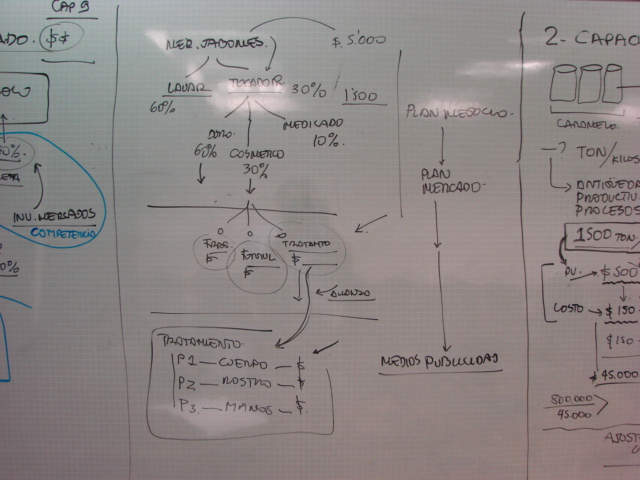 CAP 9
ADO. $$
LOW
INV. MERCADOS
COMPETENCIA
MER. JABONES.
$. 5'000
LAVAR
60%
TOCADOR
30%
1'500
MEDICADO
10%.
60%
COSMETICO
30%
TRATAMTO
$
AVANZO
TRATAMIENTO.
P1 — CUERPO — $
P2 — ROSTRO — $
P3. — MANOS — $
PLAN NEGOCIO.
PLAN
MERCADO.
MEDIOS PUBLICIDAD
2- CAPAC
CARAMELO.
—? TON/KILOS
PRODUCTIV
PROCESOS
1500 TON/
PV. → $500
COSTO → $150
$150
$45.000
500.000
45.000
AJOST